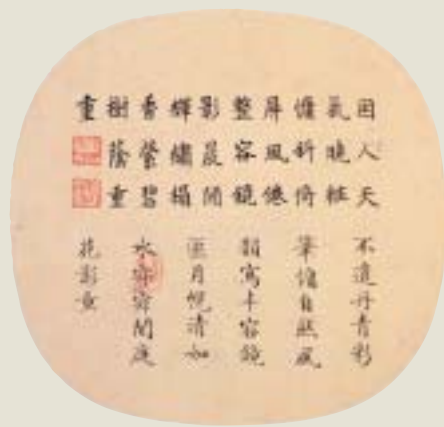 困人天
氣曉粧
慵斜倚
屏風倦
整容鏡
影晨開
輝繡榻
香縈碧
樹蔭重
重
不遣丹青彩
筆慵自然風
韻寫丰容鏡
匣月清如
水寂寂閒庭
花影重